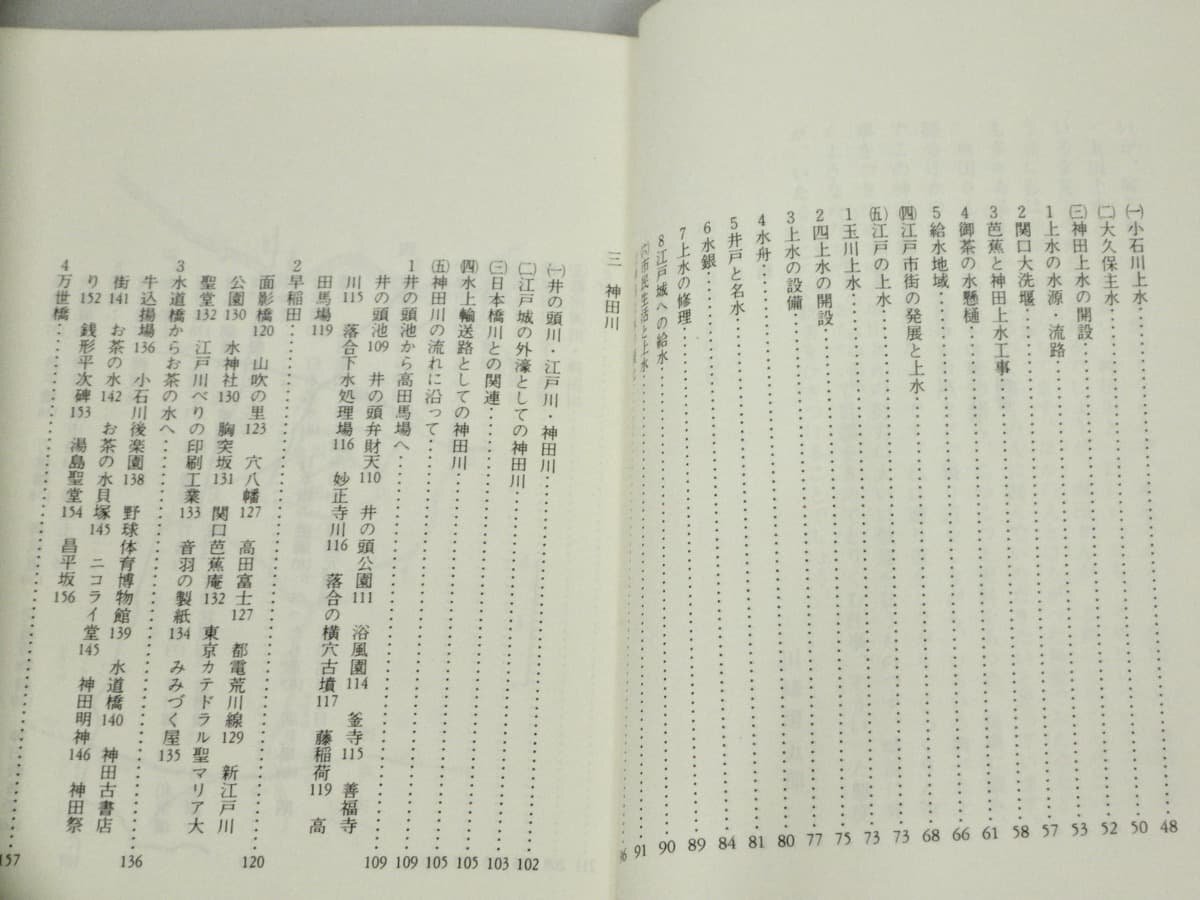 ㈠小石川上水……48
㈡大久保主水……50
㈢神田上水の開設……52
1 上水の水源・流路……53
2 関口大洗堰……57
3 芭蕉と神田上水工事……58
4 御茶の水懸樋……61
5 給水地域……66
㈣江戸市街の発展と上水……68
㈤江戸の上水……73
1 玉川上水……73
2 四上水の開設……75
3 上水の設備……77
4 水舟……80
5 井戸と名水……81
6 水銀……84
7 上水の修理……89
8 江戸城への給水……90
㈥市民生活と上水……91
96
三 神田川
㈠井の頭川・江戸川・神田川……102
㈡江戸城の外濠としての神田川……103
㈢日本橋川との関連……105
㈣水上輸送路としての神田川……105
㈤神田川の流れに沿って……109
1 井の頭池から高田馬場へ……109
井の頭池109 井の頭弁財天110 井の頭公園111 浴風園114 釜寺115 善福寺
川115 落合下水処理場116 妙正寺川116 落合の横穴古墳117 藤稲荷119 高
田馬場119
2 早稲田……120
面影橋120 山吹の里123 穴八幡127 高田富士127 都電荒川線129 新江戸川
公園130 水神社130 胸突坂131 関口芭蕉庵132 東京カテドラル聖マリア大
聖堂132 江戸川べりの印刷工業133 音羽の製紙134 みみづく屋135
3 水道橋からお茶の水へ……136
牛込揚場136 小石川後楽園138 野球体育博物館139 水道橋140 神田古書店
街141 お茶の水142 お茶の水貝塚145 ニコライ堂145 神田明神146 神田祭
り152 銭形平次碑153 湯島聖堂154 昌平坂156
4 万世橋……157